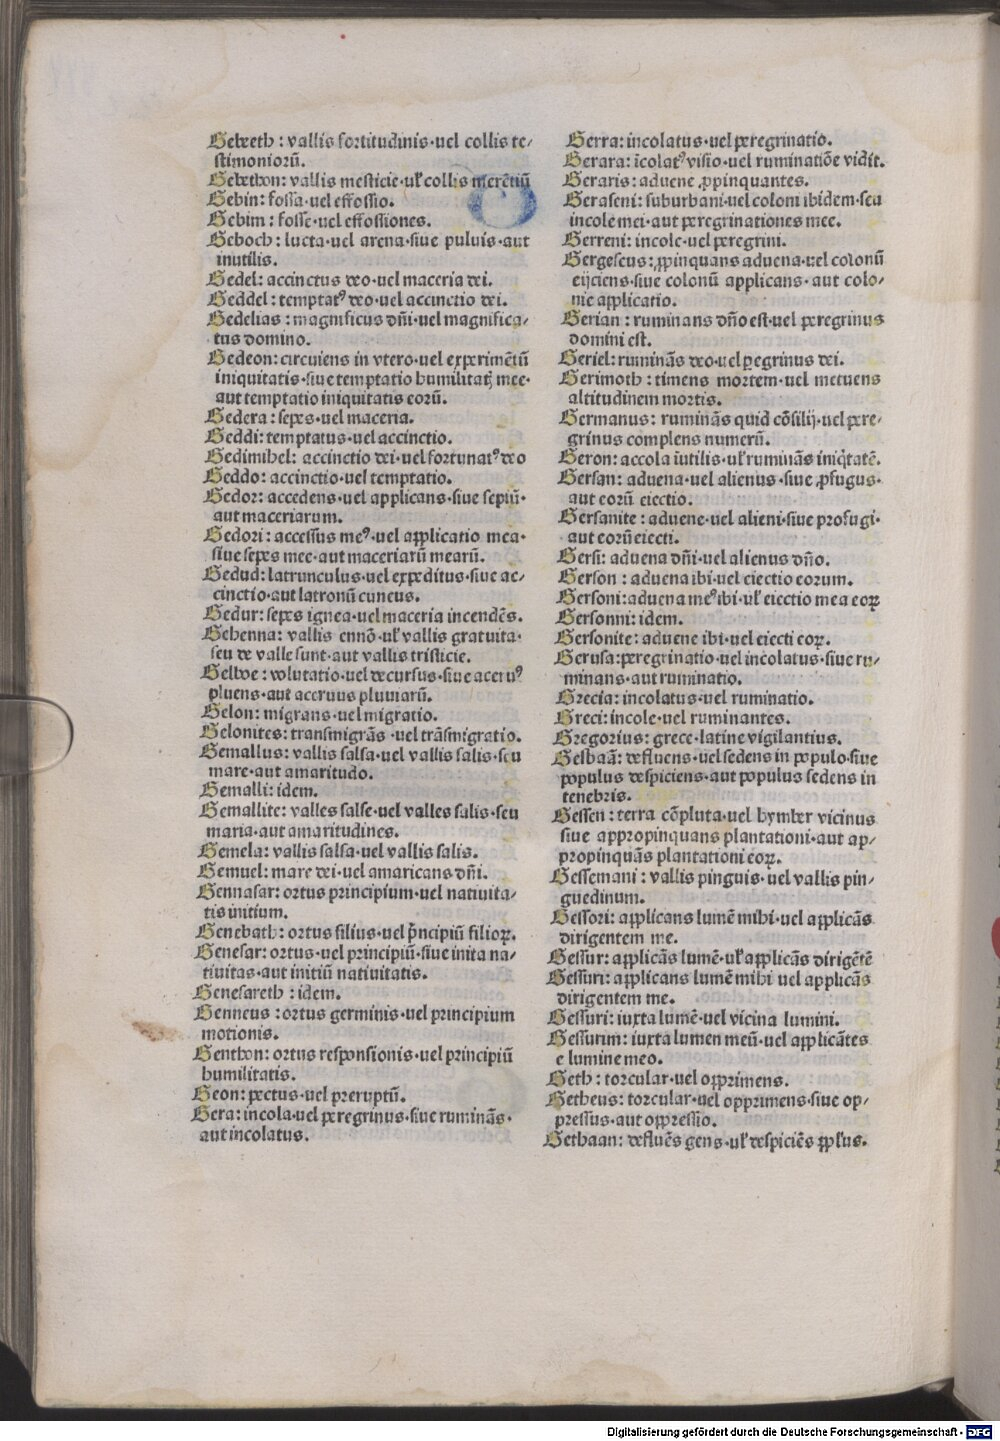 Gebeeth : vallis fortitudinis·uel collis te/
stimoniorū.
Gebethon: vallis mesticie·uł collis merētiū
Gebin: fossa·uel effossio.
Gebim: fosse·uel effossiones.
Geboch: lucta·uel arena·siue puluis·aut
inutilis.
Gedel: accinctus deo·uel maceria dei.
Geddel: temptatꝰ deo·uel accinctio dei.
Gedelias : magnificus dñi·uel magnifica/
tus domino.
Gedeon: circuiens in vtero·uel experimētū
iniquitatis·siue temptatio humilitatꝭ mee·
aut temptatio iniquitatis eorū.
Gedera: sepes·uel maceria.
Geddi: temptatus·uel accinctio.
Gedimihel: accinctio dei·uel fortunatꝰ deo
Geddo: accinctio·uel temptatio.
Gedor: accedens·uel applicans·siue sepiū·
aut maceriarum.
Gedori: accessus meꝰ·uel applicatio mea·
siue sepes mee·aut maceriarū mearū.
Gedud: latrunculus·uel expeditus·siue ac/
cinctio·aut latronū cuneus.
Gedur: sepes ignea·uel maceria incendēs.
Gehenna: vallis ennō·uł vallis gratuita·
seu de valle sunt·aut vallis tristicie.
Gelboe: volutatio·uel decursus·siue aceruꝰ
pluens·aut aceruus pluuiarū.
Gelon: migrans·uel migratio.
Gelonites: transmigrās·uel trāsmigratio.
Gemallus: vallis salsa·uel vallis salis·seu
mare·aut amaritudo.
Gemalli: idem.
Gemallite: valles salse·uel valles salis·seu
maria·aut amaritudines.
Gemela: vallis salsa·uel vallis salis.
Gemuel: mare dei·uel amaricans dñi.
Gennasar: ortus principium·uel natiuita/
tis initium.
Genebath: ortus filius·uel p̄ncipiū filioꝝ.
Genesar: ortus·uel principiū·siue inita na/
tiuitas·aut initiū natiuitatis.
Genesareth : idem.
Genneus : ortus germinis·uel principium
motionis.
Genthon: ortus responsionis·uel principiū
humilitatis.
Geon: pectus·uel preruptū.
Gera: incola·uel peregrinus·siue ruminās·
aut incolatus.
Gerra: incolatus·uel peregrinatio.
Gerara: īcolatꝰ visio·uel ruminatiōe vidit.
Geraris: aduene ꝓpinquantes.
Geraseni: suburbani·uel coloni ibidem·seu
incole mei·aut peregrinationes mee.
Gerreni: incole·uel peregrini.
Gergeseus: ꝓpinquans aduena·uel colonū
eijciens·siue colonū applicans·aut colo/
nie applicatio.
Gerian : ruminans dño est·uel peregrinus
domini est.
Geriel: ruminās deo·uel ꝑegrinus dei.
Gerimoth : timens mortem·uel metuens
altitudinem mortis.
Germanus: ruminās quid cōsilij·uel pere/
grinus complens numerū.
Geron: accola īutilis·uł ruminās iniq̇tatē.
Gersan: aduena·uel alienus·siue ꝓfugus·
aut eorū eiectio.
Gersanite : aduene·uel alieni·siue profugi·
aut eorū eiecti.
Gersi: aduena dñi·uel alienus dño.
Gerson : aduena ibi·uel eiectio eorum.
Gersoni: aduena meꝰ ibi·uł eiectio mea eoꝝ
Gersonni: idem.
Gersonite: aduene ibi·uel eiecti eoꝝ.
Gerusa: peregrinatio·uel incolatus·siue ru/
minans·aut ruminatio.
Grecia: incolatus·uel ruminatio.
Greci: incole·uel ruminantes.
Gregorius: grece·latine vigilantius.
Gesbaā: defluens·uel sedens in populo·siue
populus despiciens·aut populus sedens in
tenebris.
Gessen : terra cōpluta·uel hymber vicinus
siue appropinquans plantationi·aut ap/
propinquās plantationi eoꝝ.
Gessemani : vallis pinguis·uel vallis pin/
guedinum.
Gessori: applicans lumē mihi·uel applicās
dirigentem me.
Gessur: applicās lumē·uł applicās dirigētē
Gessuri: applicans lumē mihi uel applicās
dirigentem me.
Gessuri: iuxta lumē·uel vicina lumini.
Gessurim: iuxta lumen meū·uel applicātes
e lumine meo.
Geth : torcular·uel opprimens.
Getheus: torcular·uel opprimens·siue op/
pressus·aut oppressio.
Gethaan: defluēs gens·uł despiciēs pp̄lus.
Digitalisierung gefördert durch die Deutsche Forschungsgemeinschaft - DFG